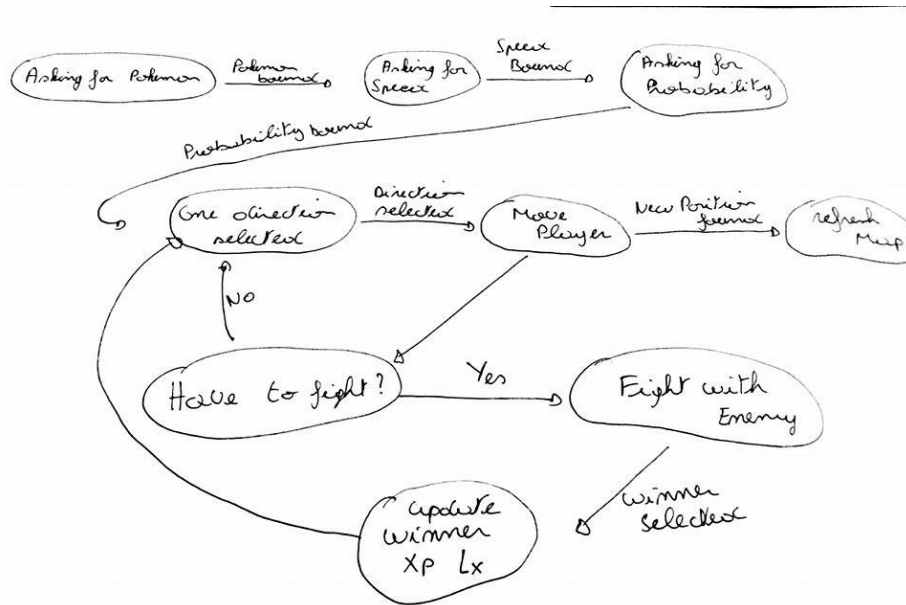 Asking for Pokemon
Pokemon
bound
Asking for
Speed
Speed
Bound
Asking for
Probability
Probability bound
One direction
selected
Direction
selected
Move
Player
New Position
found
refresh
Map
NO
Have to fight?
Yes
Fight with
Enemy
winner
selected
update
winner
XP